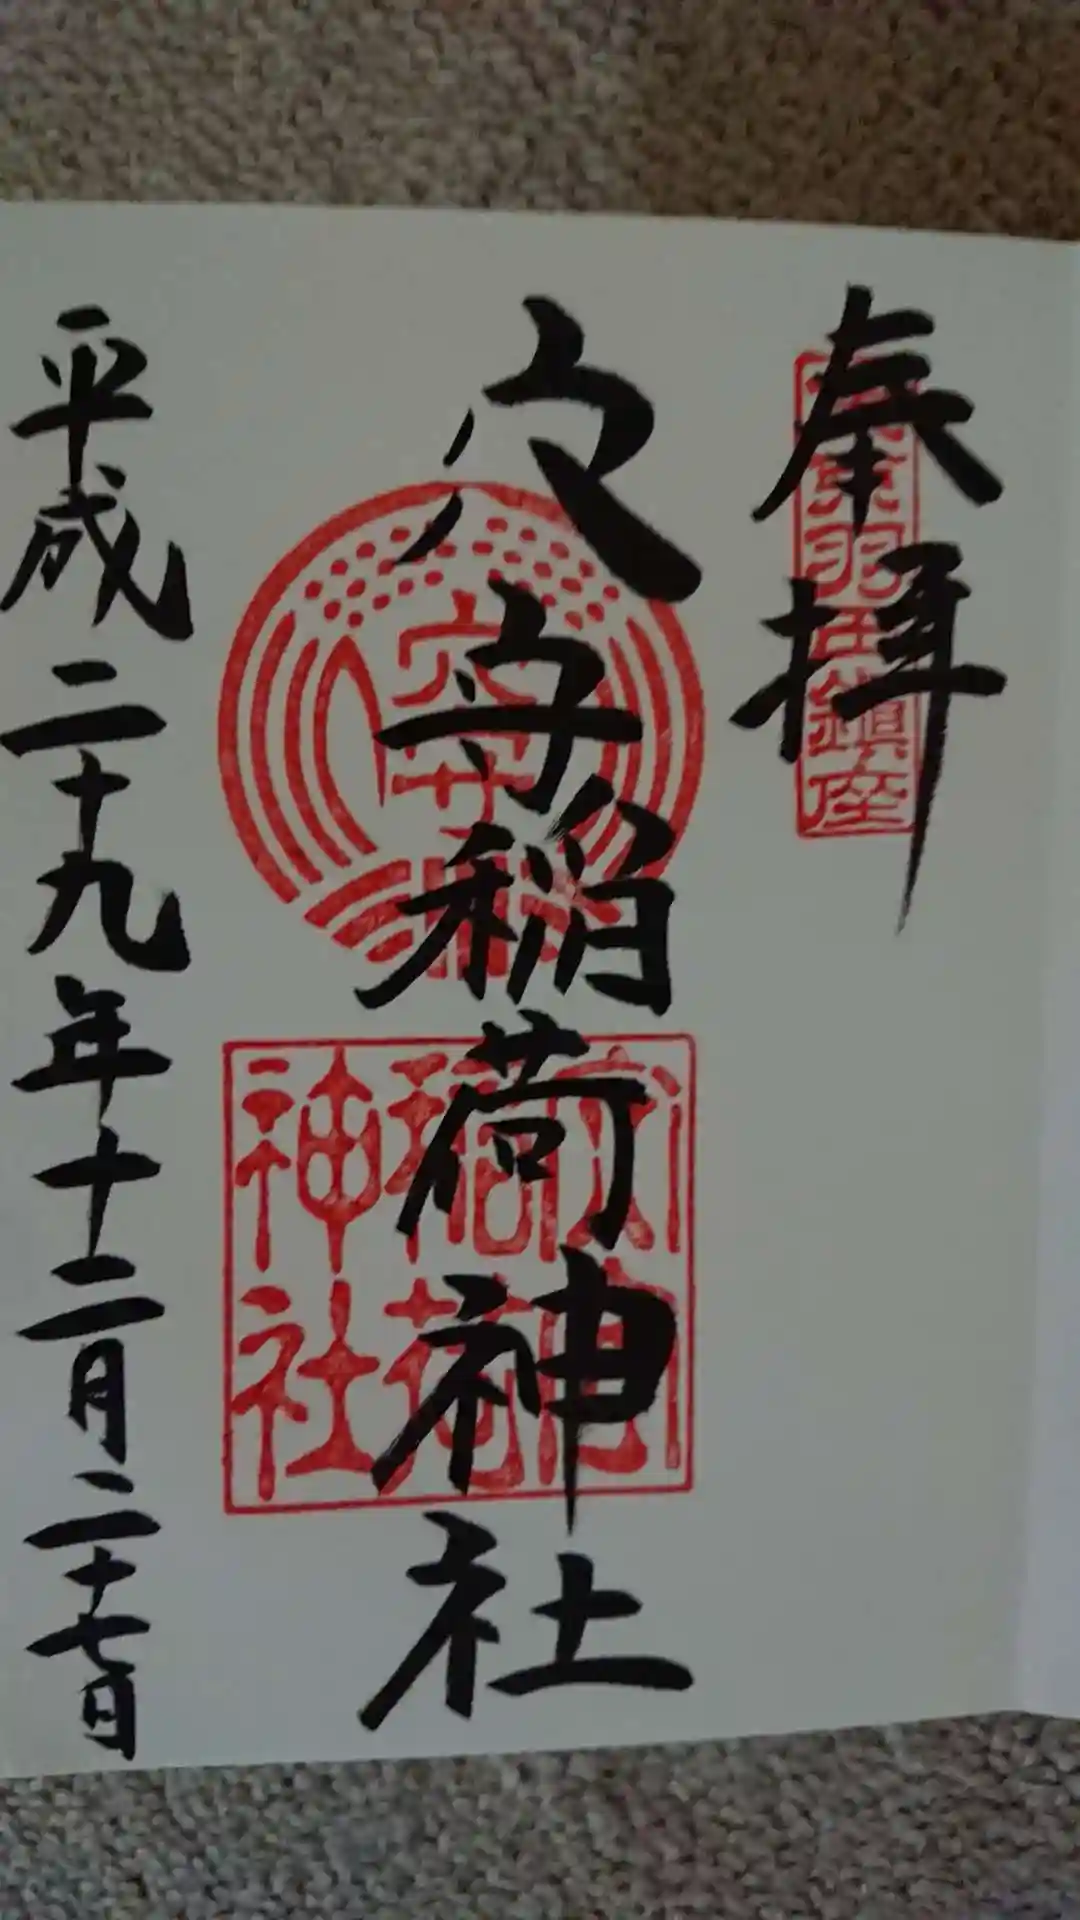 奉拝
穴守稲荷神社
平成二十九年十二月二十七日
東京羽田鎮座
穴守
穴守
稲荷
神社